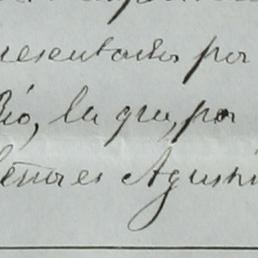 resentados por
Rio, la que, por
Señores Agustin